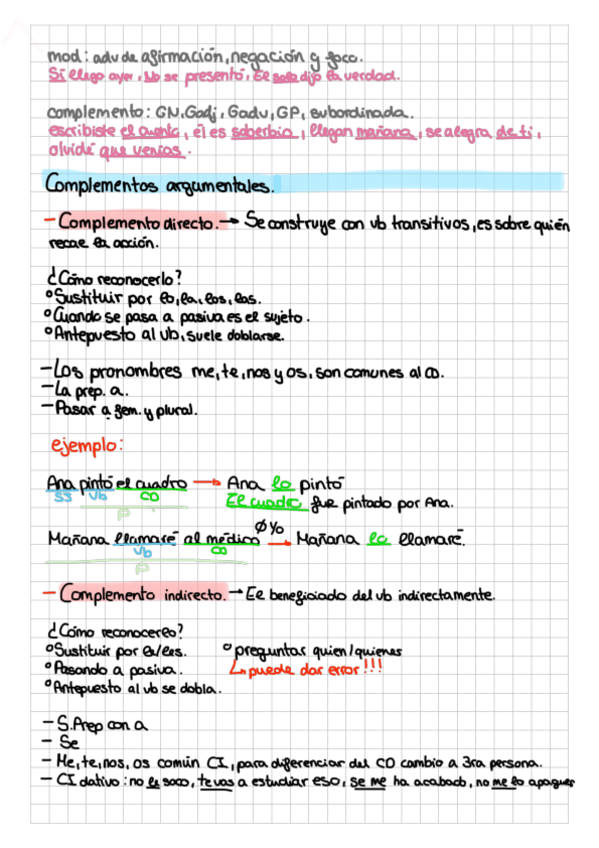 mod: adv de afirmación, negación y foco.
Sí llego ayer, No se presentó, Él solo dijo la verdad.
complemento: GN, Gadj, Gadv, GP, subordinada.
escribiste el cuento, él es soberbio, llegan mañana, se alegra de ti,
olvidé que venías.
Complementos argumentales.
- Complemento directo. → Se construye con vb transitivos, es sobre quién
recae la acción.
¿Cómo reconocerlo?
° Sustituir por lo, la, los, las.
° Cuando se pasa a pasiva es el sujeto.
° Antepuesto al vb, suele doblarse.
- Los pronombres me, te, nos y os, son comunes al CD.
- La prep. a.
- Pasar a fem. y plural.
ejemplo:
Ana pintó el cuadro → Ana lo pintó
SS vb CD El cuadro fue pintado por Ana.
P
Ø yo
Mañana llamaré al médico → Mañana lo llamaré.
vb CD
P
- Complemento indirecto. → El beneficiado del vb indirectamente.
¿Cómo reconocerlo?
° Sustituir por le/les. ° preguntar quien/quienes
° Pasando a pasiva. ↳ puede dar error!!!
° Antepuesto al vb se dobla.
- S.Prep con a
- Se
- Me, te, nos, os común CI, para diferenciar del CD cambio a 3ra persona.
- CI dativo: no le saco, te vas a estudiar eso, se me ha acabado, no me lo apagues